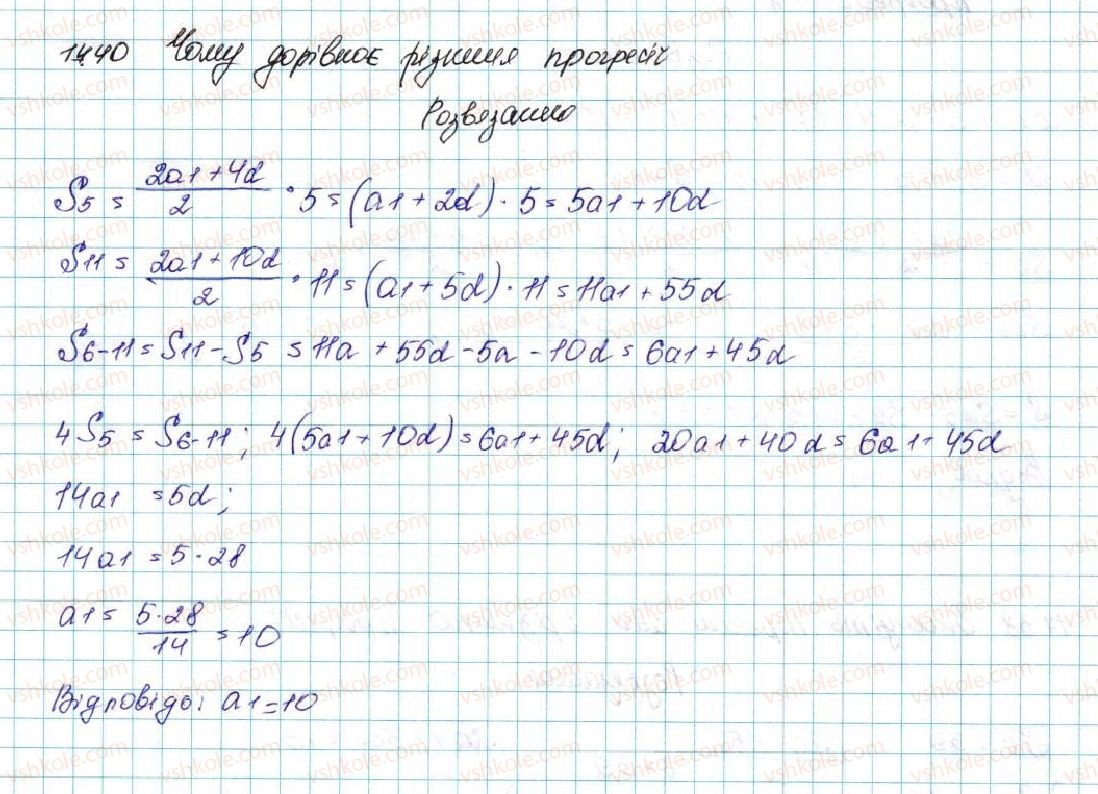 1440 Чому дорівнює різниця прогресії
Розвязання
S5 = (2a1 + 4d)/2 · 5 = (a1 + 2d) · 5 = 5a1 + 10d
S11 = (2a1 + 10d)/2 · 11 = (a1 + 5d) · 11 = 11a1 + 55d
S6-11 = S11 - S5 = 11a + 55d - 5a - 10d = 6a1 + 45d
4S5 = S6-11; 4(5a1 + 10d) = 6a1 + 45d; 20a1 + 40d = 6a1 + 45d
14a1 = 5d;
14a1 = 5 · 28
a1 = (5 · 28)/14 = 10
Відповідь: a1 = 10